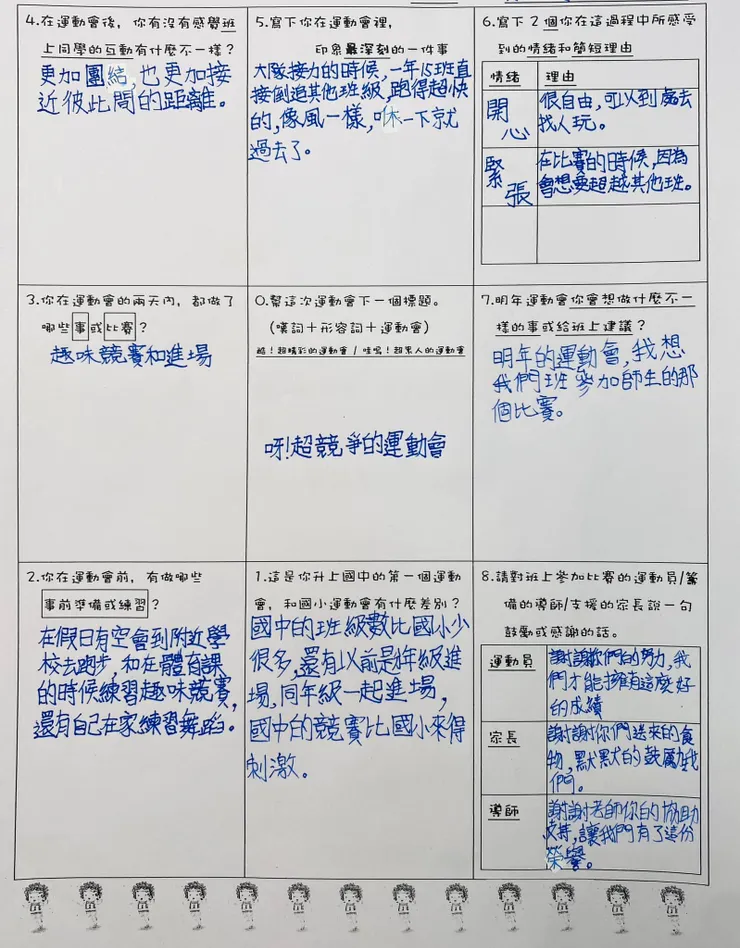 4.在運動會後，你有沒有感覺班
上同學的互動有什麼不一樣？
更加團結，也更加接
近彼此間的距離。
5.寫下你在運動會裡，
印象最深刻的一件事
大隊接力的時候，一年15班直
接倒追其他班級，跑得超快
的，像風一樣，咻一下就
過去了。
6.寫下 2 個你在這過程中所感受
到的情緒和簡短理由
情緒 理由
開心 很自由，可以到處去
找人玩。
緊張 在比賽的時候，因為
會想要超越其他班。
3.你在運動會的兩天內，都做了
哪些事或比賽？
趣味競賽和進場
0.幫這次運動會下一個標題。
(嘆詞＋形容詞＋運動會)
酷！超精彩的運動會 / 哇嗚！超累人的運動會
呀!超競爭的運動會
7.明年運動會你會想做什麼不一
樣的事或給班上建議？
明年的運動會，我想
我們班參加師生的那
個比賽。
2.你在運動會前，有做哪些
事前準備或練習？
在假日有空會到附近學
校去跑步，和在體育課
的時候練習趣味競賽，
還有自己在家練習舞蹈。
1.這是你升上國中的第一個運動
會，和國小運動會有什麼差別？
國中的班級數比國小少
很多，還有以前是年級進
場，同年級一起進場，
國中的競賽比國小來得
刺激。
8.請對班上參加比賽的運動員/籌
備的導師/支援的家長說一句
鼓勵或感謝的話。
運動員 謝謝你們的努力，我
們才能擁有這麼好
的成績
家長 謝謝你們送來的食
物，默默的鼓勵我
們。
導師 謝謝老師你的協助
支持，讓我們有了這份
榮譽。